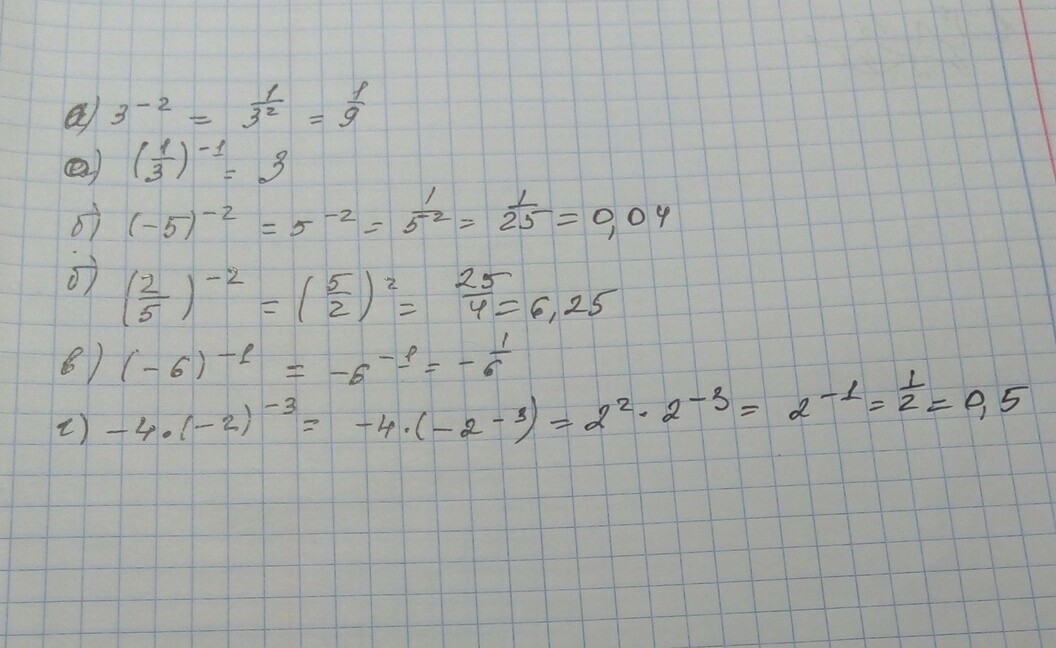 а) 3⁻² = 1/3² = 1/9
а) (1/3)⁻¹ = 3
б) (-5)⁻² = 5⁻² = 1/5² = 1/25 = 0,04
б) (2/5)⁻² = (5/2)² = 25/4 = 6,25
в) (-6)⁻¹ = -6⁻¹ = -1/6
г) -4·(-2)⁻³ = -4·(-2⁻³) = 2²·2⁻³ = 2⁻¹ = 1/2 = 0,5